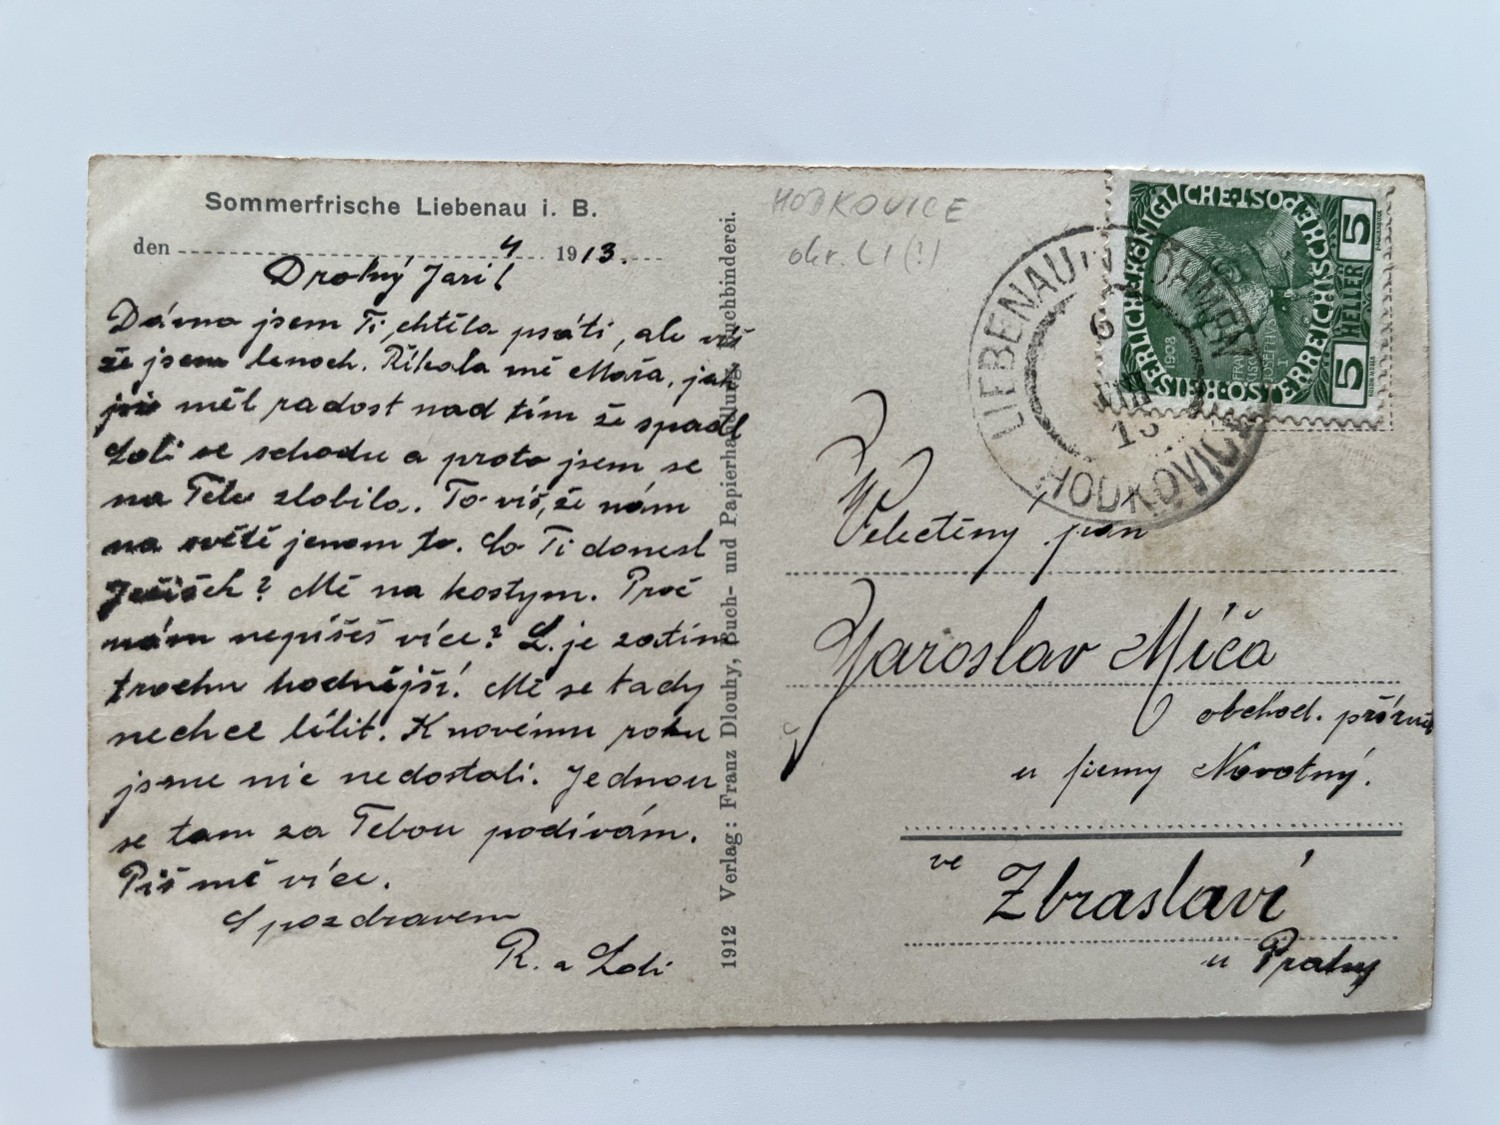 Sommerfrische Liebenau i. B.
den 4 1913.
Drahý Jaril
Dávno jsem Ti chtěla psáti, ale víš
že jsem lenoch. Říkala mě Mářa, jak
jsi měl radost nad tím že spadl
Loli se schodu a proto jsem se
na Tebe zlobila. To víš, že nám
na světě jenom to. Co Ti donesl
Ježíšek? Mě na kostym. Proč
nám nepíšeš více? L. je zatím
trochu hodnější. Mě se tady
nechce líbit. K novému roku
jsme nic nedostali. Jednou
se tam za Tebou podívám.
Piš mě více.
S pozdravem
R. a Loli
1912 Verlag: Franz Dlouhy, Buch- und Papierhandlung, Buchbinderei.
HODKOVICE
okr. LI (!)
LIEBENAU in BÖHMEN
6
VIII
13
HODKOVICE
KAISERLICHE KÖNIGLICHE ÖSTERREICHISCHE POST
1908
FRANZ
JOSEPH I
5 HELLER 5
Velectěný pan
Jaroslav Míča
obchod. příručí
u firmy Novotný.
ve Zbraslavi
u Prahy